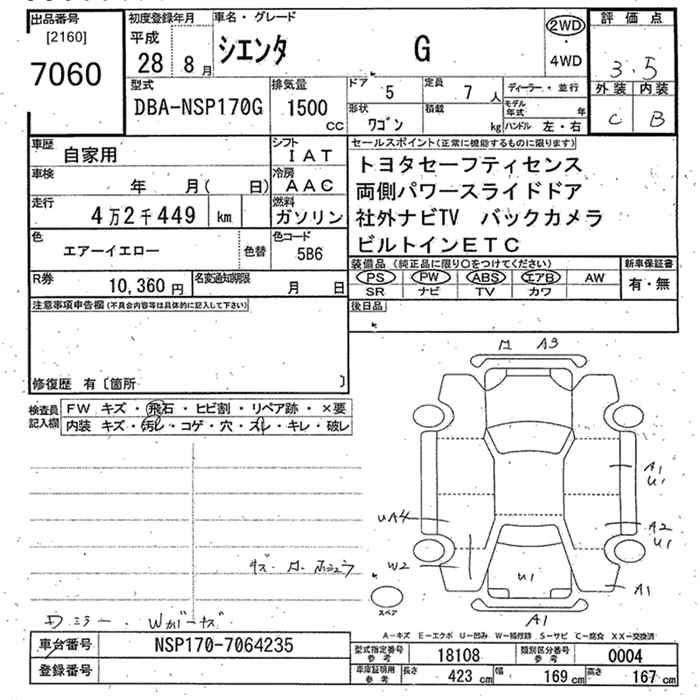 出品番号
[2160]
7060
初度登録年月
平成
28 8月
車名・グレード
シエンタ G
2WD
・
4WD
評価点
3.5
外装 内装
C B
型式
DBA-NSP170G
排気量
1500
CC
ドア 5
定員 7 人
形状 ワゴン
積載 kg
ディーラー・並行
モデル年式 年
ハンドル 左・右
車歴 自家用
シフト IAT
車検 年 月( 日)
冷房 AAC
走行 4万2千449 km
燃料 ガソリン
色 エアーイエロー 色替
色コード 5B6
R券 10,360円
名変通知期限 月 日
セールスポイント(正常に機能するものに限ります)
トヨタセーフティセンス
両側パワースライドドア
社外ナビTV バックカメラ
ビルトインETC
装備品(純正品に限り○をつけてください)
PS PW ABS エアB AW
SR ナビ TV カワ
新車保証書
有・無
後日品
注意事項申告欄(不具合内容等は具体的に記入して下さい)
修復歴 有〔箇所 〕
検査員
記入欄
FW キズ・飛石・ヒビ割・リペア跡・×要
内装 キズ・汚レ・コゲ・穴・スレ・キレ・破レ
A3
A1
U1
UA4
A2
U1
W2
U1
A1
A1
スペア
Dミラー・Wガーズ
A-キズ E-エクボ U-凹み W-補修跡 S-サビ C-腐食 XX-交換済
車台番号 NSP170-7064235
登録番号
型式指定番号
参考
18108
類別区分番号
参考
0004
車庫証明用
参考
長さ 423 cm
幅 169 cm
高さ 167 cm